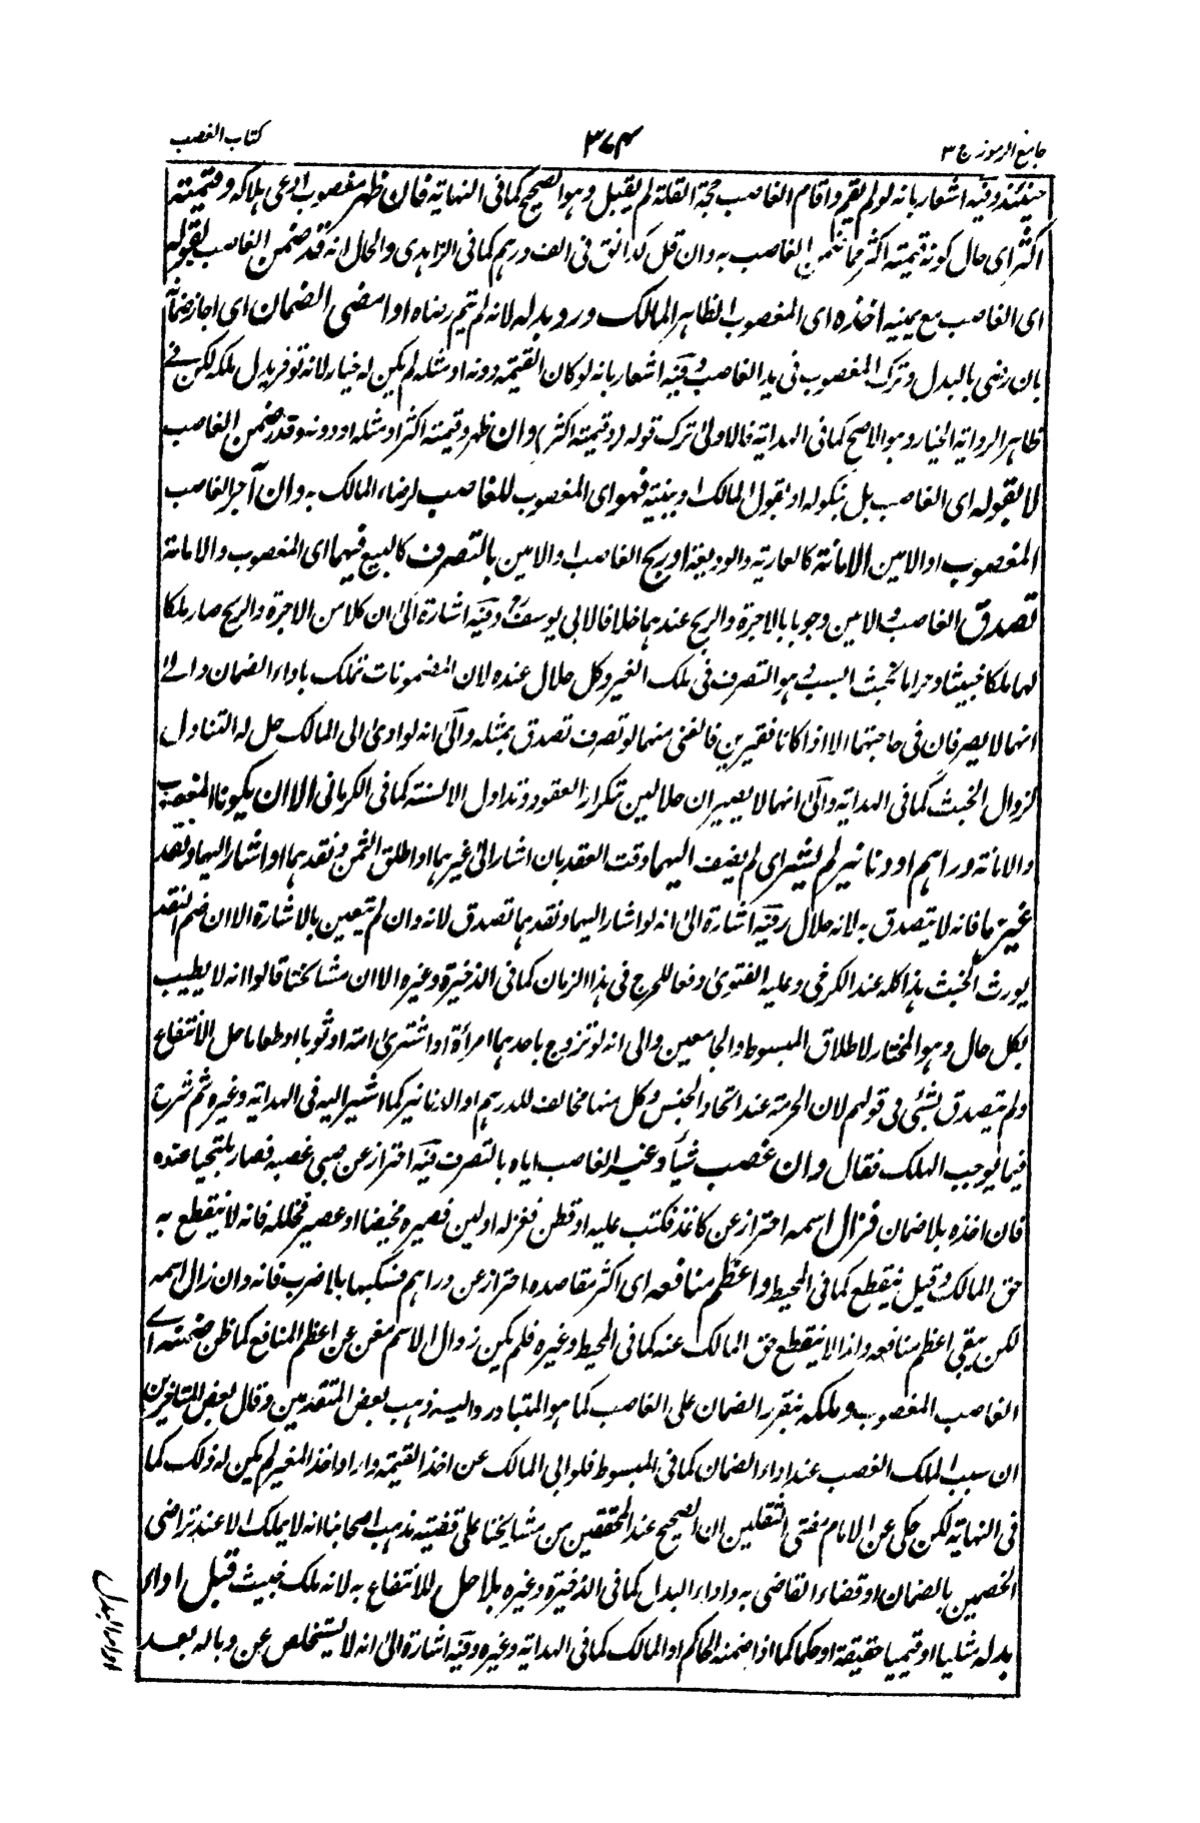 جامع الرموز ج ٣
٣٧٤
كتاب الغصب
حينئذ وفيه اشعار بانه لو لم يقم واقام الغاصب حجة القلة لم يقبل وهو الصحيح كما فى النهاية فان ظهر مغصوب ادعى هلاكه وقيمته
اكثر اى حال كونه قيمته اكثر مما ضمن الغاصب به وان قل كدانق فى الف درهم كما فى الزاهدى والحال انه قد ضمن الغاصب بقوله
اى الغاصب مع يمينه اخذه اى المغصوب الظاهر المالك ورد بدله لانه لم يتم رضاه او امضى الضمان اى اجاز ضمانه
بان رضى بالبدل وترك المغصوب فى يد الغاصب وفيه اشعار بانه لو كان القيمة دونه او مثله لم يكن له خيار لانه توفر بدل ملكه لكن فى
ظاهر الرواية الخيار وهو الاصح كما فى الهداية فالاولى ترك قوله (وقيمته اكثر) وان ظهر وقيمته اكثر او مثله او دونه وقد ضمن الغاصب
لا بقوله اى الغاصب بل بنكوله او بقول المالك او ببينة فهو اى المغصوب للغاصب لرضاء المالك به وان آجر الغاصب
المغصوب او الامين الامانة كالعارية والوديعة او ربح الغاصب او الامين بالتصرف كالبيع فيهما اى المغصوب والامانة
تصدق الغاصب والامين وجوبا بالاجرة والربح عندهما خلافا لابى يوسف وفيه اشارة الى ان كلا من الاجرة والربح صار ملكا
لهما ملكا خبيثا وحراما لخبث السبب وهو التصرف فى ملك الغير وكل حلال عنده لان المضمونات تملك باداء الضمان والى
انهما لا يصرفان فى حاجتهما الا اذا كانا فقيرين فالغنى منهما لو تصرف تصدق بمثله والى انه لو ادى الى المالك حل له التناول
لزوال الخبث كما فى الهداية والى انهما لا يصيران حلالين بتكرار العقود وتداول الالسنة كما فى الكرمانى الا ان يكونا المغصوب
والامانة دراهم او دنانير لم يشر اى لم يضف اليهما وقت العقد بان اشار الى غيرهما او اطلق الثمن ونقدهما او اشار اليهما ونقد
غيرهما فانه لا يتصدق به لانه حلال وفيه اشارة الى انه لو اشار اليهما ونقدهما تصدق لانه وان لم تتعين بالاشارة الا ان ضم النقد
يورث الخبث هذا كله عند الكرخى وعليه الفتوى دفعا للحرج فى هذا الزمان كما فى الذخيرة وغيره الا ان مشائخنا قالوا انه لا يطيب
بكل حال وهو المختار لاطلاق المبسوط والجامعين والى انه لو تزوج باحدهما امرأة او اشترى امة او ثوبا او طعاما حل الانتفاع
ولم يتصدق بشئ فى قولهم لان الحرمة عند اتحاد الجنس وكل منها مخالف للدرهم او الدنانير كما اشير اليه فى الهداية وغيره ثم شرع
فيما يوجب الملك فقال وان غصب شيأ وغيره الغاصب اياه بالتصرف فيه احتراز عن صبى غصبه فصار ملتحيا عنده
فان اخذه بلا ضمان فزال اسمه احتراز عن كاغذ فكتب عليه او قطن فغزله او لبن فصيره مخيضا او عصير فخلله فانه لا ينقطع به
حق المالك وقيل ينقطع كما فى المحيط واعظم منافعه اى اكثر مقاصده احتراز عن دراهم فسبكها بلا ضرب فانه وان زال اسمه
لكن يبقى اعظم منافعه ولذا لا ينقطع حق المالك عنه كما فى المحيط وغيره فلم يكن زوال الاسم مغن عن اعظم المنافع كما ظن ضمنه اى
الغاصب المغصوب وملكه بتقرر الضمان على الغاصب كما هو المتبادر واليه ذهب بعض المتقدمين وقال بعض المتاخرين
ان سبب الملك الغصب عند اداء الضمان كما فى المبسوط فلو ابى المالك عن اخذ القيمة واراد اخذ المغير لم يكن له ذلك كما
فى النهاية لكن حكى عن الامام مفتى الثقلين ان الصحيح عند المحققين من مشايخنا على قضية مذهب اصحابنا انه لا يملك الا عند تراضى
الخصمين بالضمان او قضاء القاضى به واداء البدل كما فى الذخيرة وغيره بلا حل للانتفاع به لانه ملك خبيث قبل اداء
بدله مثليا او قيميا حقيقة او حكما كما اذا ضمنه الحاكم او المالك كما فى الهداية وغيره وفيه اشارة الى انه لا يستخلص عن وباله بعد
اداء البدل